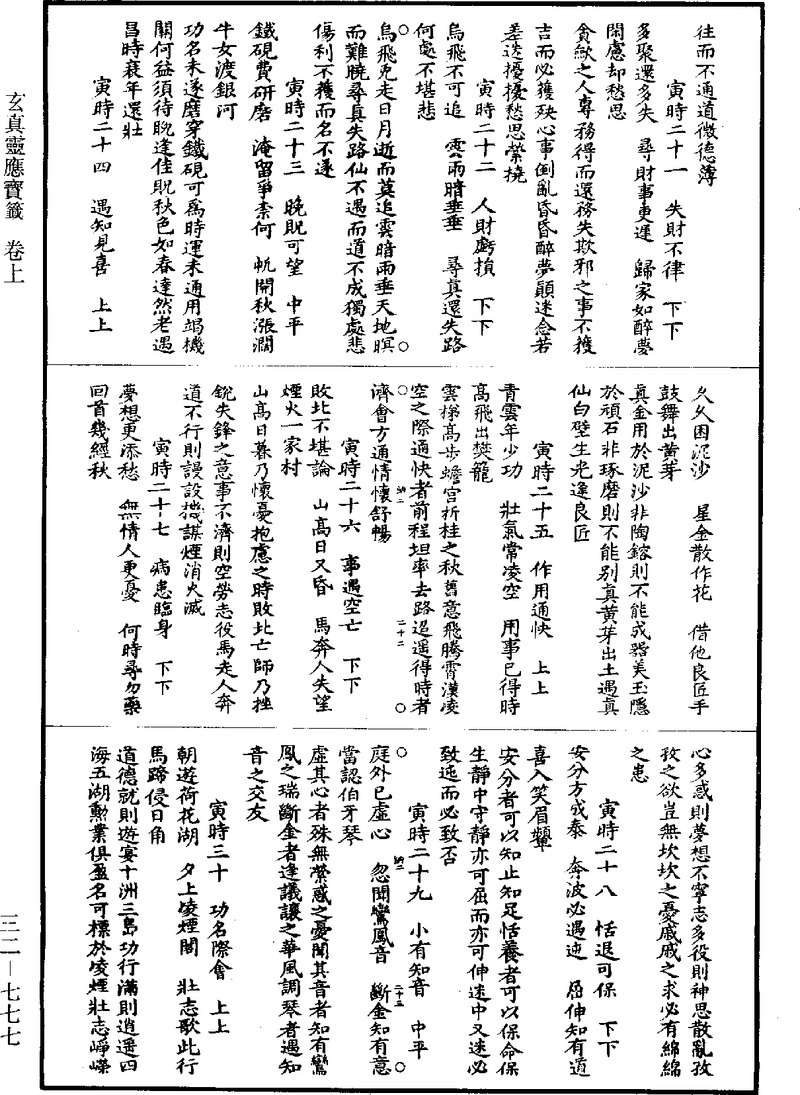 玄真靈應寶籤 卷上
三二—七七七
往而不通道微德薄
寅時二十一 失財不律 下下
多聚還多失 尋財事更遲 歸家如醉夢
閑慮却愁思
貪歛之人專務得而還務失欺邪之事不獲
吉而必獲殃心事倒亂昏昏醉夢顛迷念若
差迭擾擾愁思縈撓
寅時二十二 人財虧損 下下
烏飛不可追 雲雨暗垂垂 尋真還失路
何處不堪悲
烏飛兎走日月逝而莫追雲暗雨垂天地暝
而難曉尋真失路仙不遇而道不成獨處悲
傷利不獲而名不遂
寅時二十三 晚貺可望 中平
鐵硯費研磨 淹留爭柰何 帆開秋漲濶
牛女渡銀河
功名未遂磨穿鐵硯可為時運未通用竭機
關何益須待晚逢佳貺秋色如春達然老遇
昌時衰年還壯
寅時二十四 遇知見喜 上上
久久困泥沙 星金散作花 借他良匠手
鼓舞出黃芽
真金用於泥沙非陶鎔則不能成器美玉隱
於頑石非琢磨則不能別真黃芽出土遇真
仙白璧生光逢良匠
寅時二十五 作用通快 上上
青雲年少功 壯氣常凌空 用事已得時
高飛出樊籠
雲梯高步蟾宮折桂之秋舊意飛騰霄漢凌
空之際通快者前程坦率去路迢遥得時者
濟會方通情懷舒暢
寅時二十六 事遇空亡 下下
敗北不堪論 山高日又昏 馬奔人失望
煙火一家村
山高日暮乃懷憂抱慮之時敗北亡師乃挫
銳失鋒之意事不濟則空勞志役馬走人奔
道不行則謾設機謀煙消火滅
寅時二十七 病患臨身 下下
夢想更添愁 無情人更憂 何時尋勿藥
回首幾經秋
心多感則夢想不寧志多役則神思散亂孜
孜之欲豈無坎坎之憂戚戚之求必有綿綿
之患
寅時二十八 恬退可保 下下
安分方成泰 奔波必遇迍 屈伸知有道
喜入笑眉顰
安分者可以知止知足恬養者可以保命保
生靜中守靜亦可屈而亦可伸速中又速必
致迍而必致否
寅時二十九 小有知音 中平
庭外已虛心 忽聞鸞鳳音 斷金知有意
當認伯牙琴
虛其心者殊無縈惑之憂聞其音者知有鸞
鳳之瑞斷金者逢議讓之華風調琴者遇知
音之交友
寅時三十 功名際會 上上
朝遊荷花湖 夕上凌煙閣 壯志歌此行
馬蹄侵日角
道德就則遊宴十洲三島功行滿則逍遥四
海五湖勳業俱盈名可標於凌煙壯志崢嶸